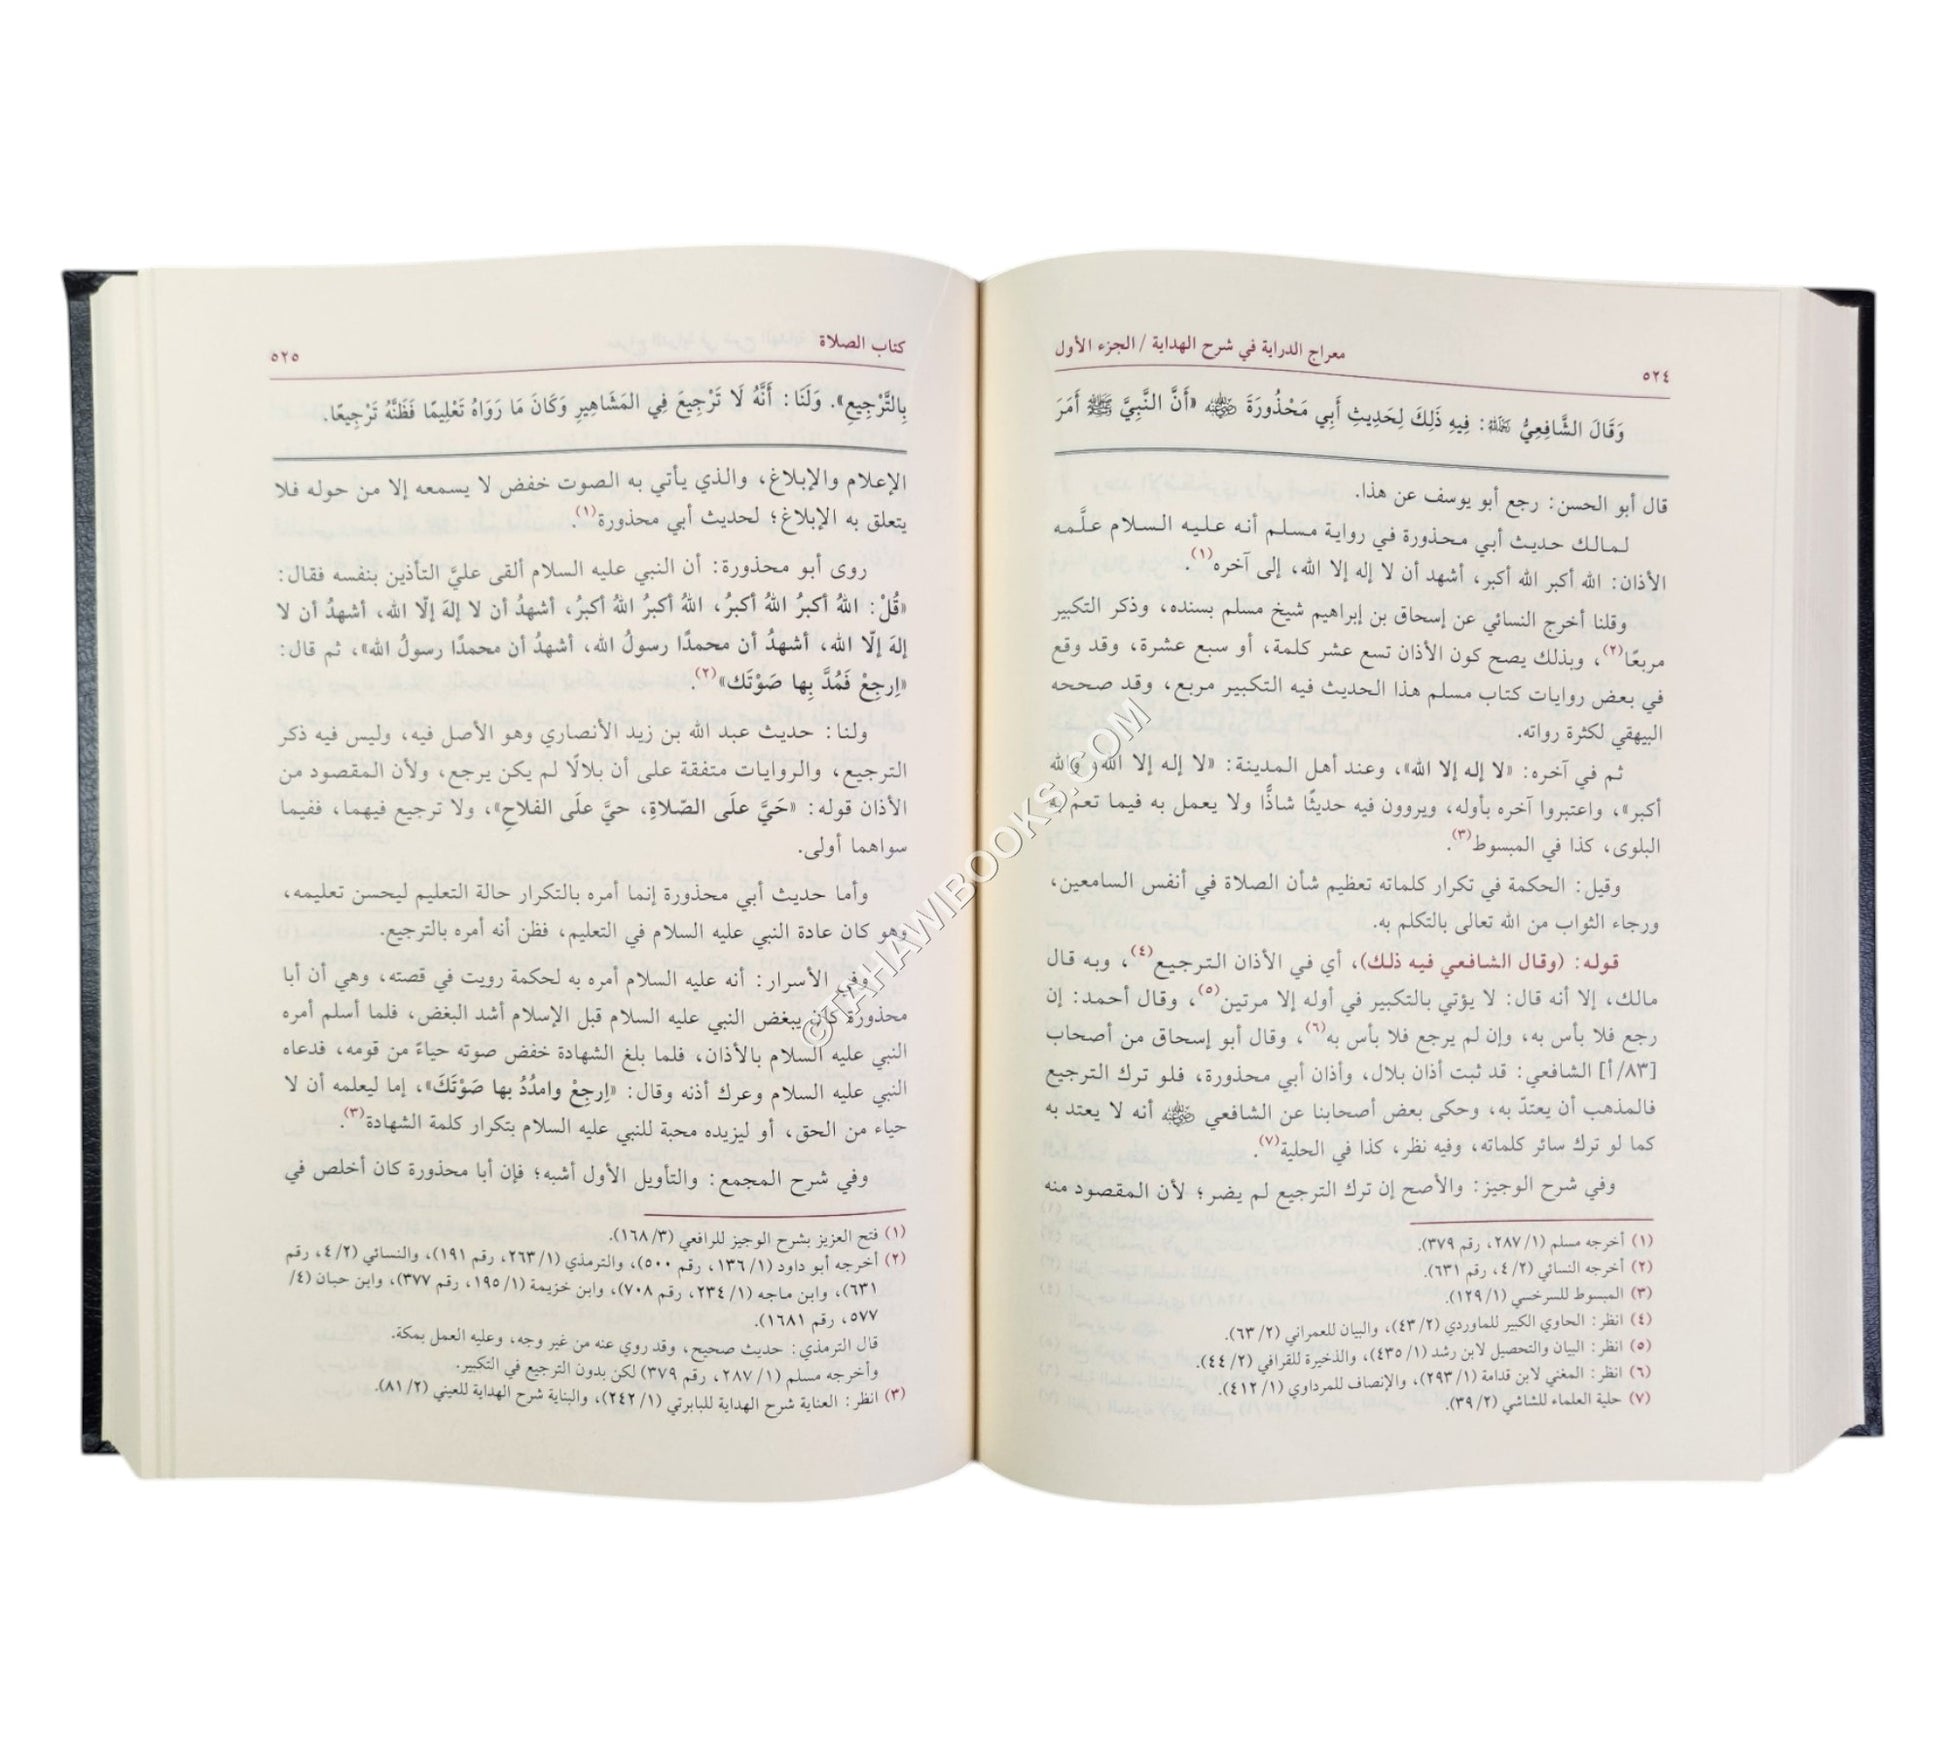 ٥٢٤
معراج الدراية في شرح الهداية / الجزء الأول
وَقَالَ الشَّافِعِيُّ رحمه الله: فِيهِ ذَلِكَ لِحَدِيثِ أَبِي مَحْذُورَةَ رضي الله عنه «أَنَّ النَّبِيَّ ﷺ أَمَرَ
قال أبو الحسن: رجع أبو يوسف عن هذا.
لمالك حديث أبي محذورة في رواية مسلم أنه عليه السلام علَّمه
الأذان: الله أكبر الله أكبر، أشهد أن لا إله إلا الله، إلى آخره(١).
وقلنا أخرج النسائي عن إسحاق بن إبراهيم شيخ مسلم بسنده، وذكر التكبير
مربعًا(٢)، وبذلك يصح كون الأذان تسع عشر كلمة، أو سبع عشرة، وقد وقع
في بعض روايات كتاب مسلم هذا الحديث فيه التكبير مربع، وقد صححه
البيهقي لكثرة رواته.
ثم في آخره: «لا إله إلا الله»، وعند أهل المدينة: «لا إله إلا الله، والله
أكبر»، واعتبروا آخره بأوله، ويروون فيه حديثًا شاذًّا ولا يعمل به فيما تعم به
البلوى، كذا في المبسوط(٣).
وقيل: الحكمة في تكرار كلماته تعظيم شأن الصلاة في أنفس السامعين،
ورجاء الثواب من الله تعالى بالتكلم به.
قوله: (وقال الشافعي فيه ذلك)، أي في الأذان الترجيع(٤)، وبه قال
مالك، إلا أنه قال: لا يؤتي بالتكبير في أوله إلا مرتين(٥)، وقال أحمد: إن
رجع فلا بأس به، وإن لم يرجع فلا بأس به(٦)، وقال أبو إسحاق من أصحاب
[٨٣/أ] الشافعي: قد ثبت أذان بلال، وأذان أبي محذورة، فلو ترك الترجيع
فالمذهب أن يعتدّ به، وحكى بعض أصحابنا عن الشافعي رضي الله عنه أنه لا يعتد به
كما لو ترك سائر كلماته، وفيه نظر، كذا في الحلية(٧).
وفي شرح الوجيز: والأصح إن ترك الترجيع لم يضر؛ لأن المقصود منه
(١) أخرجه مسلم (١/ ٢٨٧، رقم ٣٧٩).
(٢) أخرجه النسائي (٢/ ٤، رقم ٦٣١).
(٣) المبسوط للسرخسي (١/ ١٢٩).
(٤) انظر: الحاوي الكبير للماوردي (٢/ ٤٣)، والبيان للعمراني (٢/ ٦٣).
(٥) انظر: البيان والتحصيل لابن رشد (١/ ٤٣٥)، والذخيرة للقرافي (٢/ ٤٤).
(٦) انظر: المغني لابن قدامة (١/ ٢٩٣)، والإنصاف للمرداوي (١/ ٤١٢).
(٧) حلية العلماء للشاشي (٢/ ٣٩).
كتاب الصلاة
٥٢٥
بِالتَّرْجِيعِ». وَلَنَا: أَنَّهُ لَا تَرْجِيعَ فِي المَشَاهِيرِ وَكَانَ مَا رَوَاهُ تَعْلِيمًا فَظَنَّهُ تَرْجِيعًا.
الإعلام والإبلاغ، والذي يأتي به الصوت خفض لا يسمعه إلا من حوله فلا
يتعلق به الإبلاغ؛ لحديث أبي محذورة(١).
روى أبو محذورة: أن النبي عليه السلام ألقى عليَّ التأذين بنفسه فقال:
«قُلْ: اللهُ أكبرُ اللهُ أكبرُ، اللهُ أكبرُ اللهُ أكبرُ، أشهدُ أن لا إلهَ إلّا الله، أشهدُ أن لا
إلهَ إلّا الله، أشهدُ أن محمدًا رسولُ الله، أشهدُ أن محمدًا رسولُ الله»، ثم قال:
«اِرجِعْ فَمُدَّ بِها صَوْتَك»(٢).
ولنا: حديث عبد الله بن زيد الأنصاري وهو الأصل فيه، وليس فيه ذكر
الترجيع، والروايات متفقة على أن بلالًا لم يكن يرجع، ولأن المقصود من
الأذان قوله: «حَيَّ علَى الصّلاةِ، حيَّ علَى الفلاحِ»، ولا ترجيع فيهما، ففيما
سواهما أولى.
وأما حديث أبي محذورة إنما أمره بالتكرار حالة التعليم ليحسن تعليمه،
وهو كان عادة النبي عليه السلام في التعليم، فظن أنه أمره بالترجيع.
وفي الأسرار: أنه عليه السلام أمره به لحكمة رويت في قصته، وهي أن أبا
محذورة كان يبغض النبي عليه السلام قبل الإسلام أشد البغض، فلما أسلم أمره
النبي عليه السلام بالأذان، فلما بلغ الشهادة خفض صوته حياءً من قومه، فدعاه
النبي عليه السلام وعرك أذنه وقال: «اِرجِعْ وامدُدْ بها صَوْتَكَ»، إما ليعلمه أن لا
حياء من الحق، أو ليزيده محبة للنبي عليه السلام بتكرار كلمة الشهادة(٣).
وفي شرح المجمع: والتأويل الأول أشبه؛ فإن أبا محذورة كان أخلص في
(١) فتح العزيز بشرح الوجيز للرافعي (٣/ ١٦٨).
(٢) أخرجه أبو داود (١/ ١٣٦، رقم ٥٠٠)، والترمذي (١/ ٢٦٣، رقم ١٩١)، والنسائي (٢/ ٤، رقم
٦٣١)، وابن ماجه (١/ ٢٣٤، رقم ٧٠٨)، وابن خزيمة (١/ ١٩٥، رقم ٣٧٧)، وابن حبان (٤/
٥٧٧، رقم ١٦٨١).
قال الترمذي: حديث صحيح، وقد روي عنه من غير وجه، وعليه العمل بمكة.
وأخرجه مسلم (١/ ٢٨٧، رقم ٣٧٩) لكن بدون الترجيع في التكبير.
(٣) انظر: العناية شرح الهداية للبابرتي (١/ ٢٤٢)، والبناية شرح الهداية للعيني (٢/ ٨١).
©TAHAWIBOOKS.COM